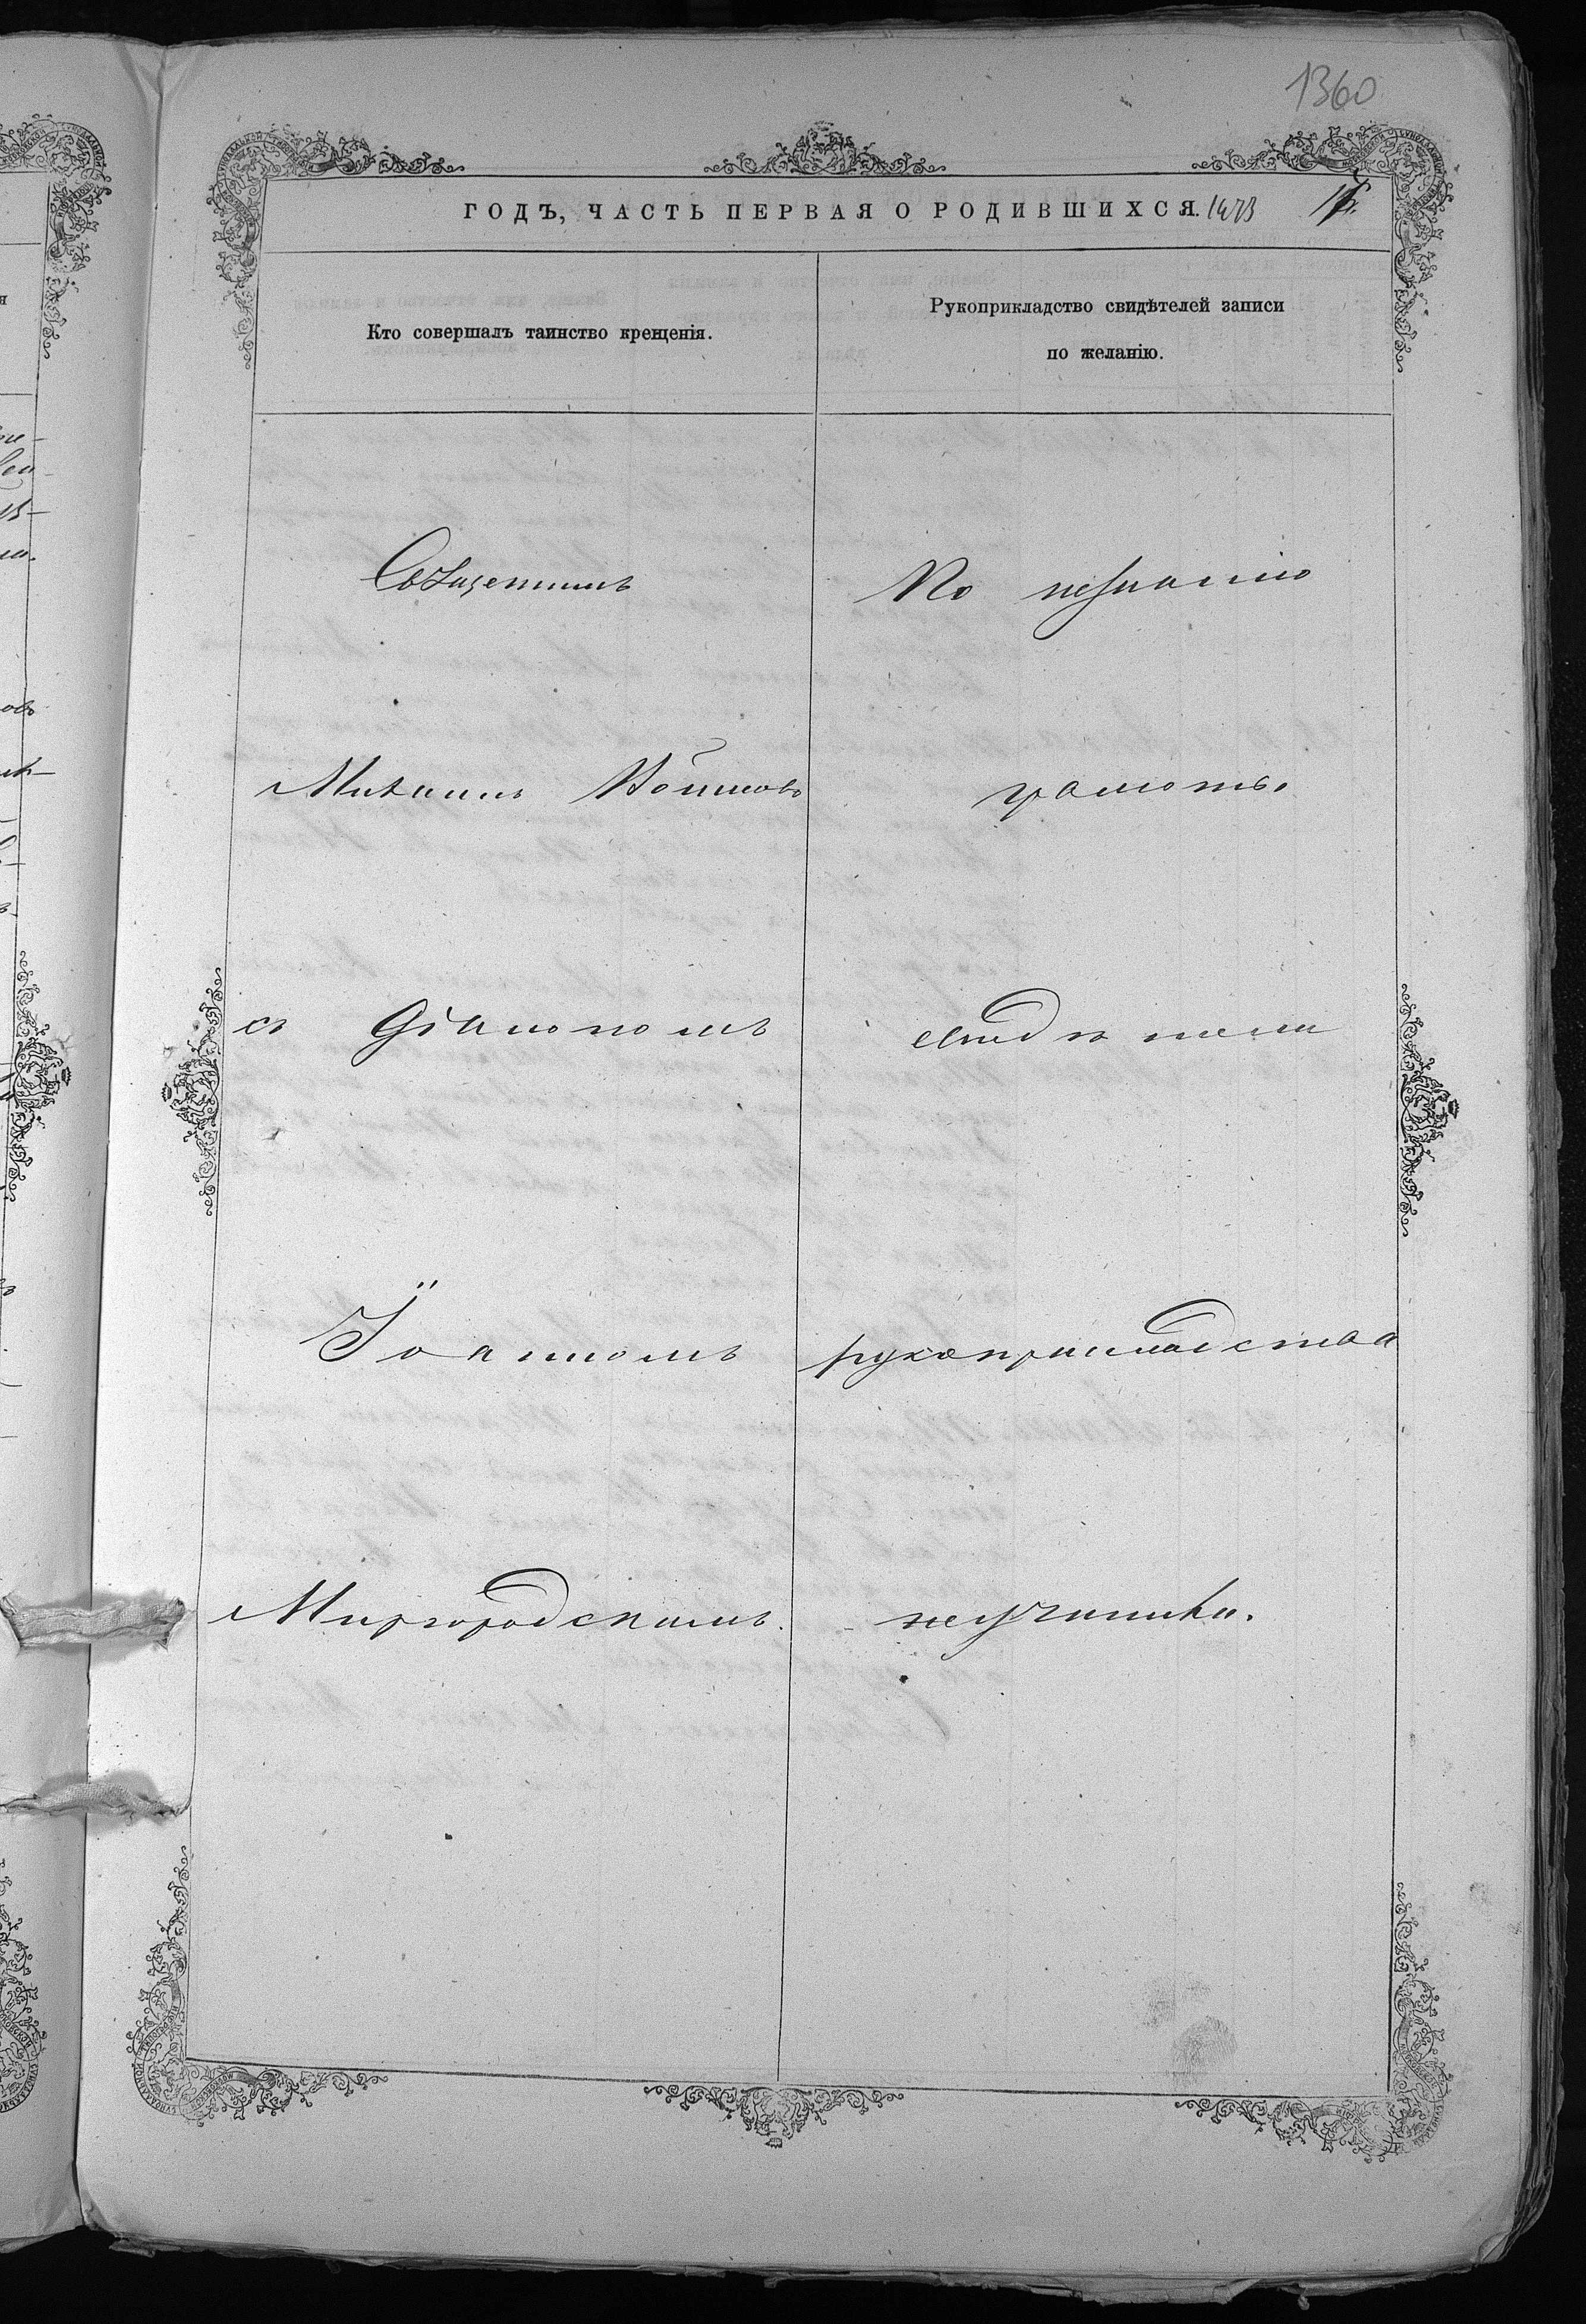 1360
ГОДЪ, ЧАСТЬ ПЕРВАЯ О РОДИВШИХСЯ.
Кто совершалъ таинство крещенія.
Рукоприкладство свидѣтелей записи
по желанію.
Священникъ
По незнанію
Михаилъ
грамоты
съ Діакономъ
свидѣтели
Іоанномъ
рукоприкладства
Миргородскимъ.
неучинили.